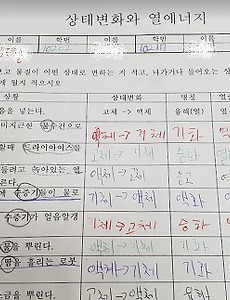 상태변화와 열에너지
이름 학번 이름 학번 이름
10202 10217
보고 물질이 어떤 상태로 변하는 지 적고, 나가거나 들어오는 상
게 될지 적으시오
상황 상태변화 명칭
음을 넣는다. 고체 → 액체 융해(열)
미지근한 물수건으로 액체 → 기체 기화
할때 드라이아이스를 고체 → 기체 승화
들려고 녹아있는 액체 → 고체 응고
수증기들이 물로 기체 → 액체 액화
수증기가 얼음알갱 기체 → 고체 승화
물을 뿌린다. 액체 → 기체 기화
땀을 흘리는 로봇 액체 → 기체 기화
소금을 뿌린다. 고체 → 액체 융해